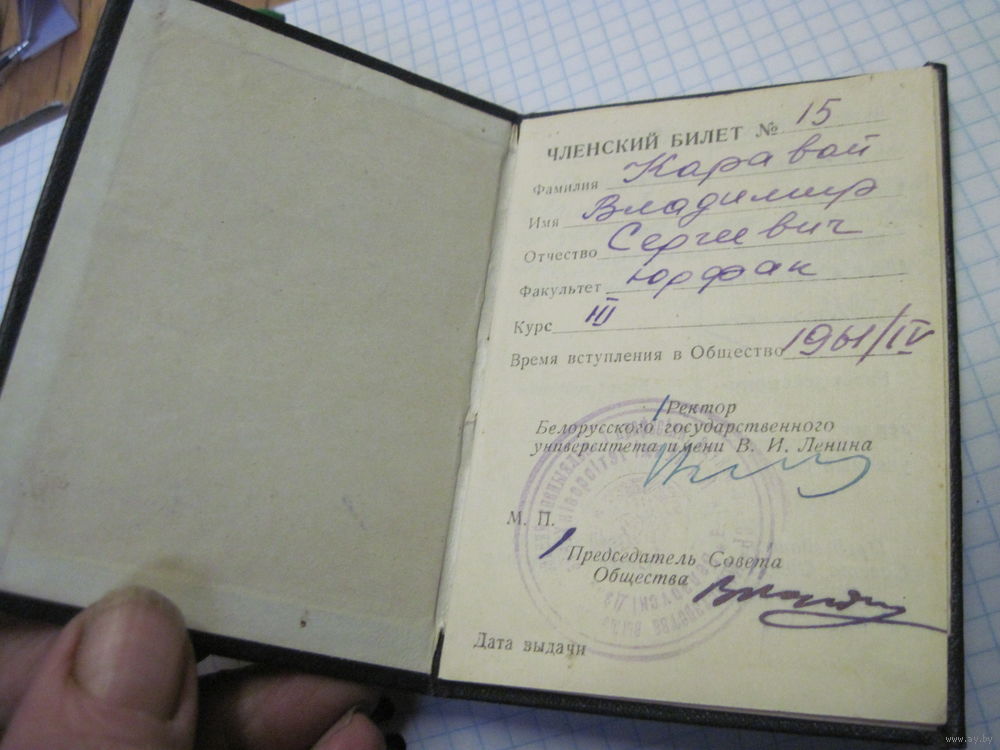 ЧЛЕНСКИЙ БИЛЕТ № 15
Фамилия Каравай
Имя Владимир
Отчество Сергеевич
Факультет юрфак
Курс III
Время вступления в Общество 1961/IV
Ректор
Белорусского государственного
университета имени В. И. Ленина
М. П.
Председатель Совета
Общества
Дата выдачи
www.ay.by